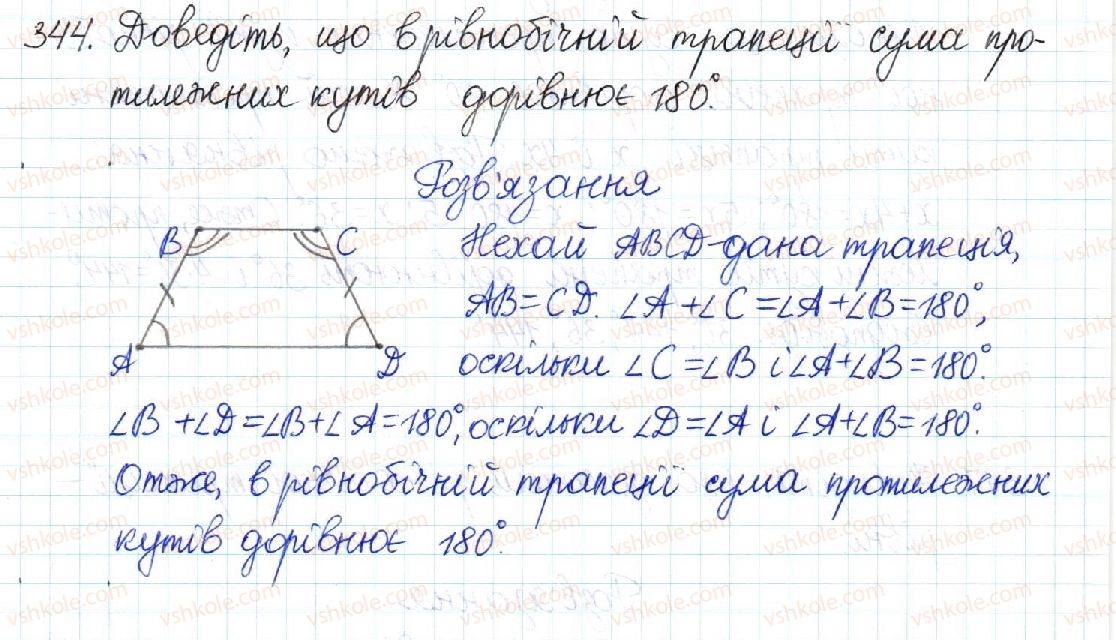 344. Доведіть, що в рівнобічній трапеції сума про-
тилежних кутів дорівнює 180°.
Розв'язання
B C Нехай ABCD - дана трапеція,
AB = CD. ∠A + ∠C = ∠A + ∠B = 180°,
A D оскільки ∠C = ∠B і ∠A + ∠B = 180°.
∠B + ∠D = ∠B + ∠A = 180°, оскільки ∠D = ∠A і ∠A + ∠B = 180°.
Отже, в рівнобічній трапеції сума протилежних
кутів дорівнює 180°.
vshkole.com